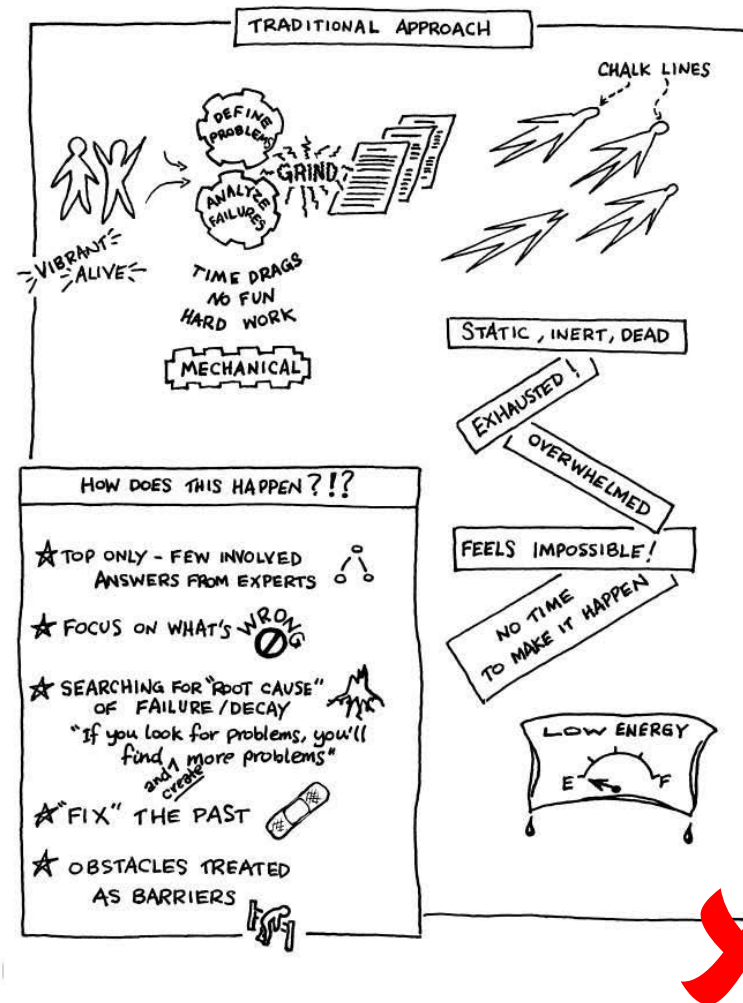 TRADITIONAL APPROACH
CHALK LINES
DEFINE
PROBLEMS
GRIND
ANALYZE
FAILURES
VIBRANT
ALIVE
TIME DRAGS
NO FUN
HARD WORK
MECHANICAL
STATIC, INERT, DEAD
EXHAUSTED!
OVERWHELMED
FEELS IMPOSSIBLE!
NO TIME
TO MAKE IT HAPPEN
LOW ENERGY
E F
HOW DOES THIS HAPPEN?!?
TOP ONLY - FEW INVOLVED
ANSWERS FROM EXPERTS
FOCUS ON WHAT'S WRONG
SEARCHING FOR "ROOT CAUSE"
OF FAILURE/DECAY
"If you look for problems, you'll
find and create more problems"
"FIX" THE PAST
OBSTACLES TREATED
AS BARRIERS